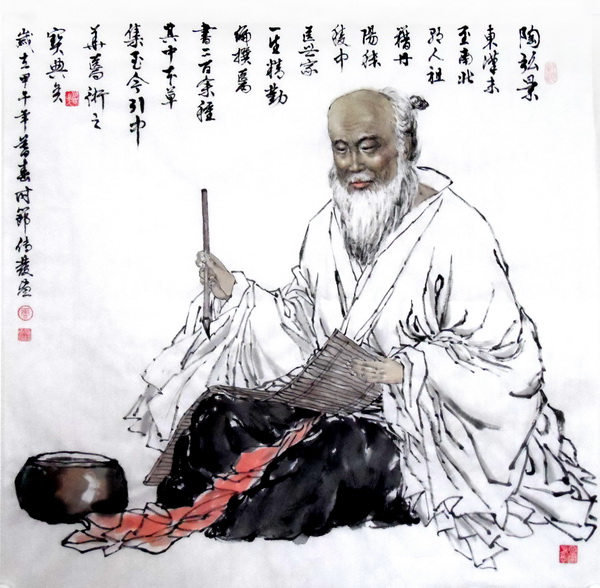 陶弘景
東漢末
至南北
朝人祖
籍丹
陽秣
陵中
医世家
一生精勤
編撰醫
書二百余種
其中本草
集至今引中
華醫術之
寶典矣
歲 甲午年暮春时節偉 畫